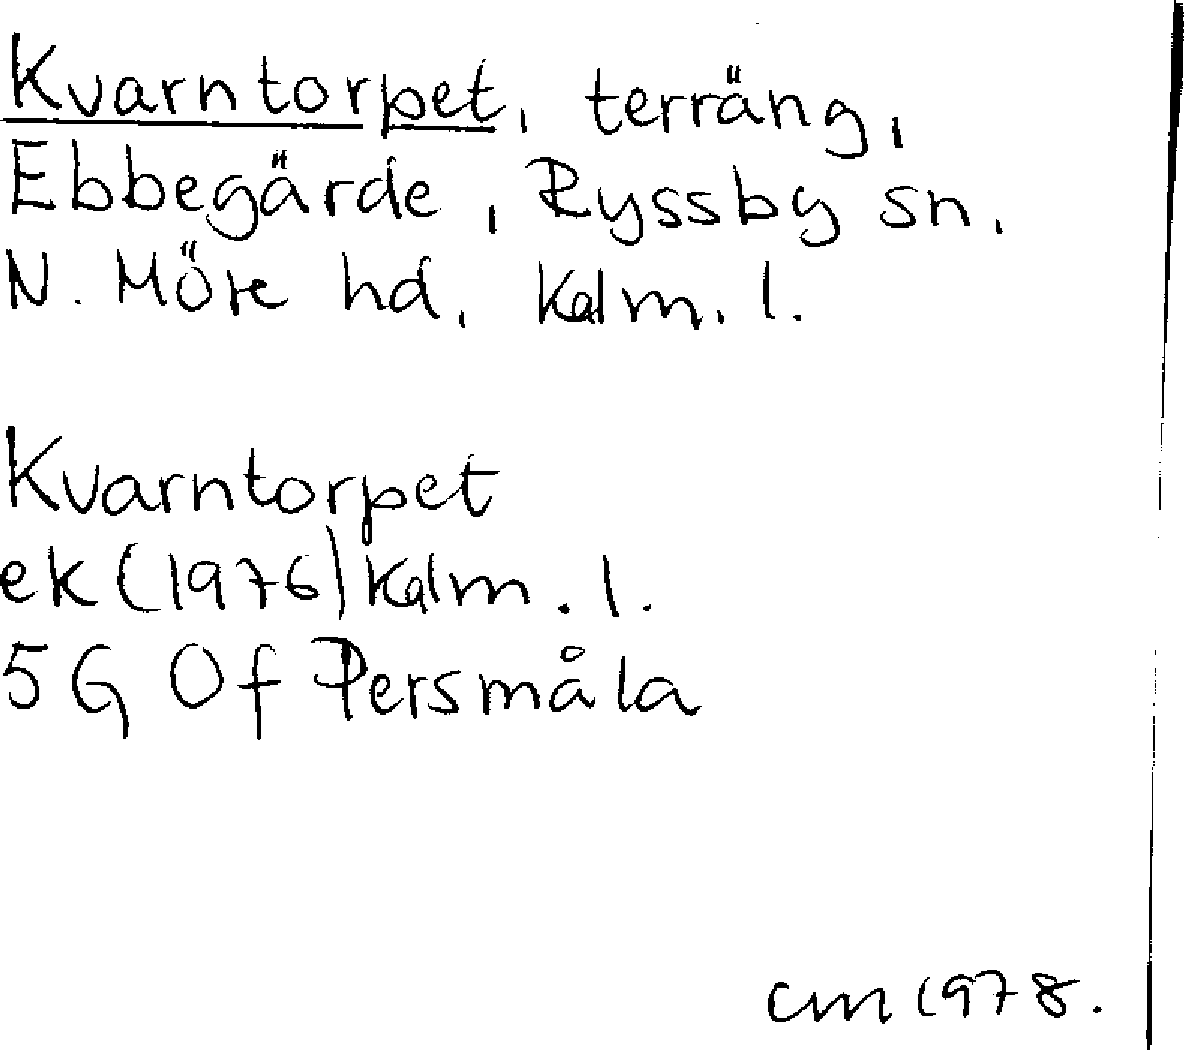 Kvarntorpet, terräng,
Ebbegärde, Ryssby sn.
N. Möre hd, Kalm. l.
Kvarntorpet
ek (1976) Kalm. l.
5G Of Persmåla
cm 1978.